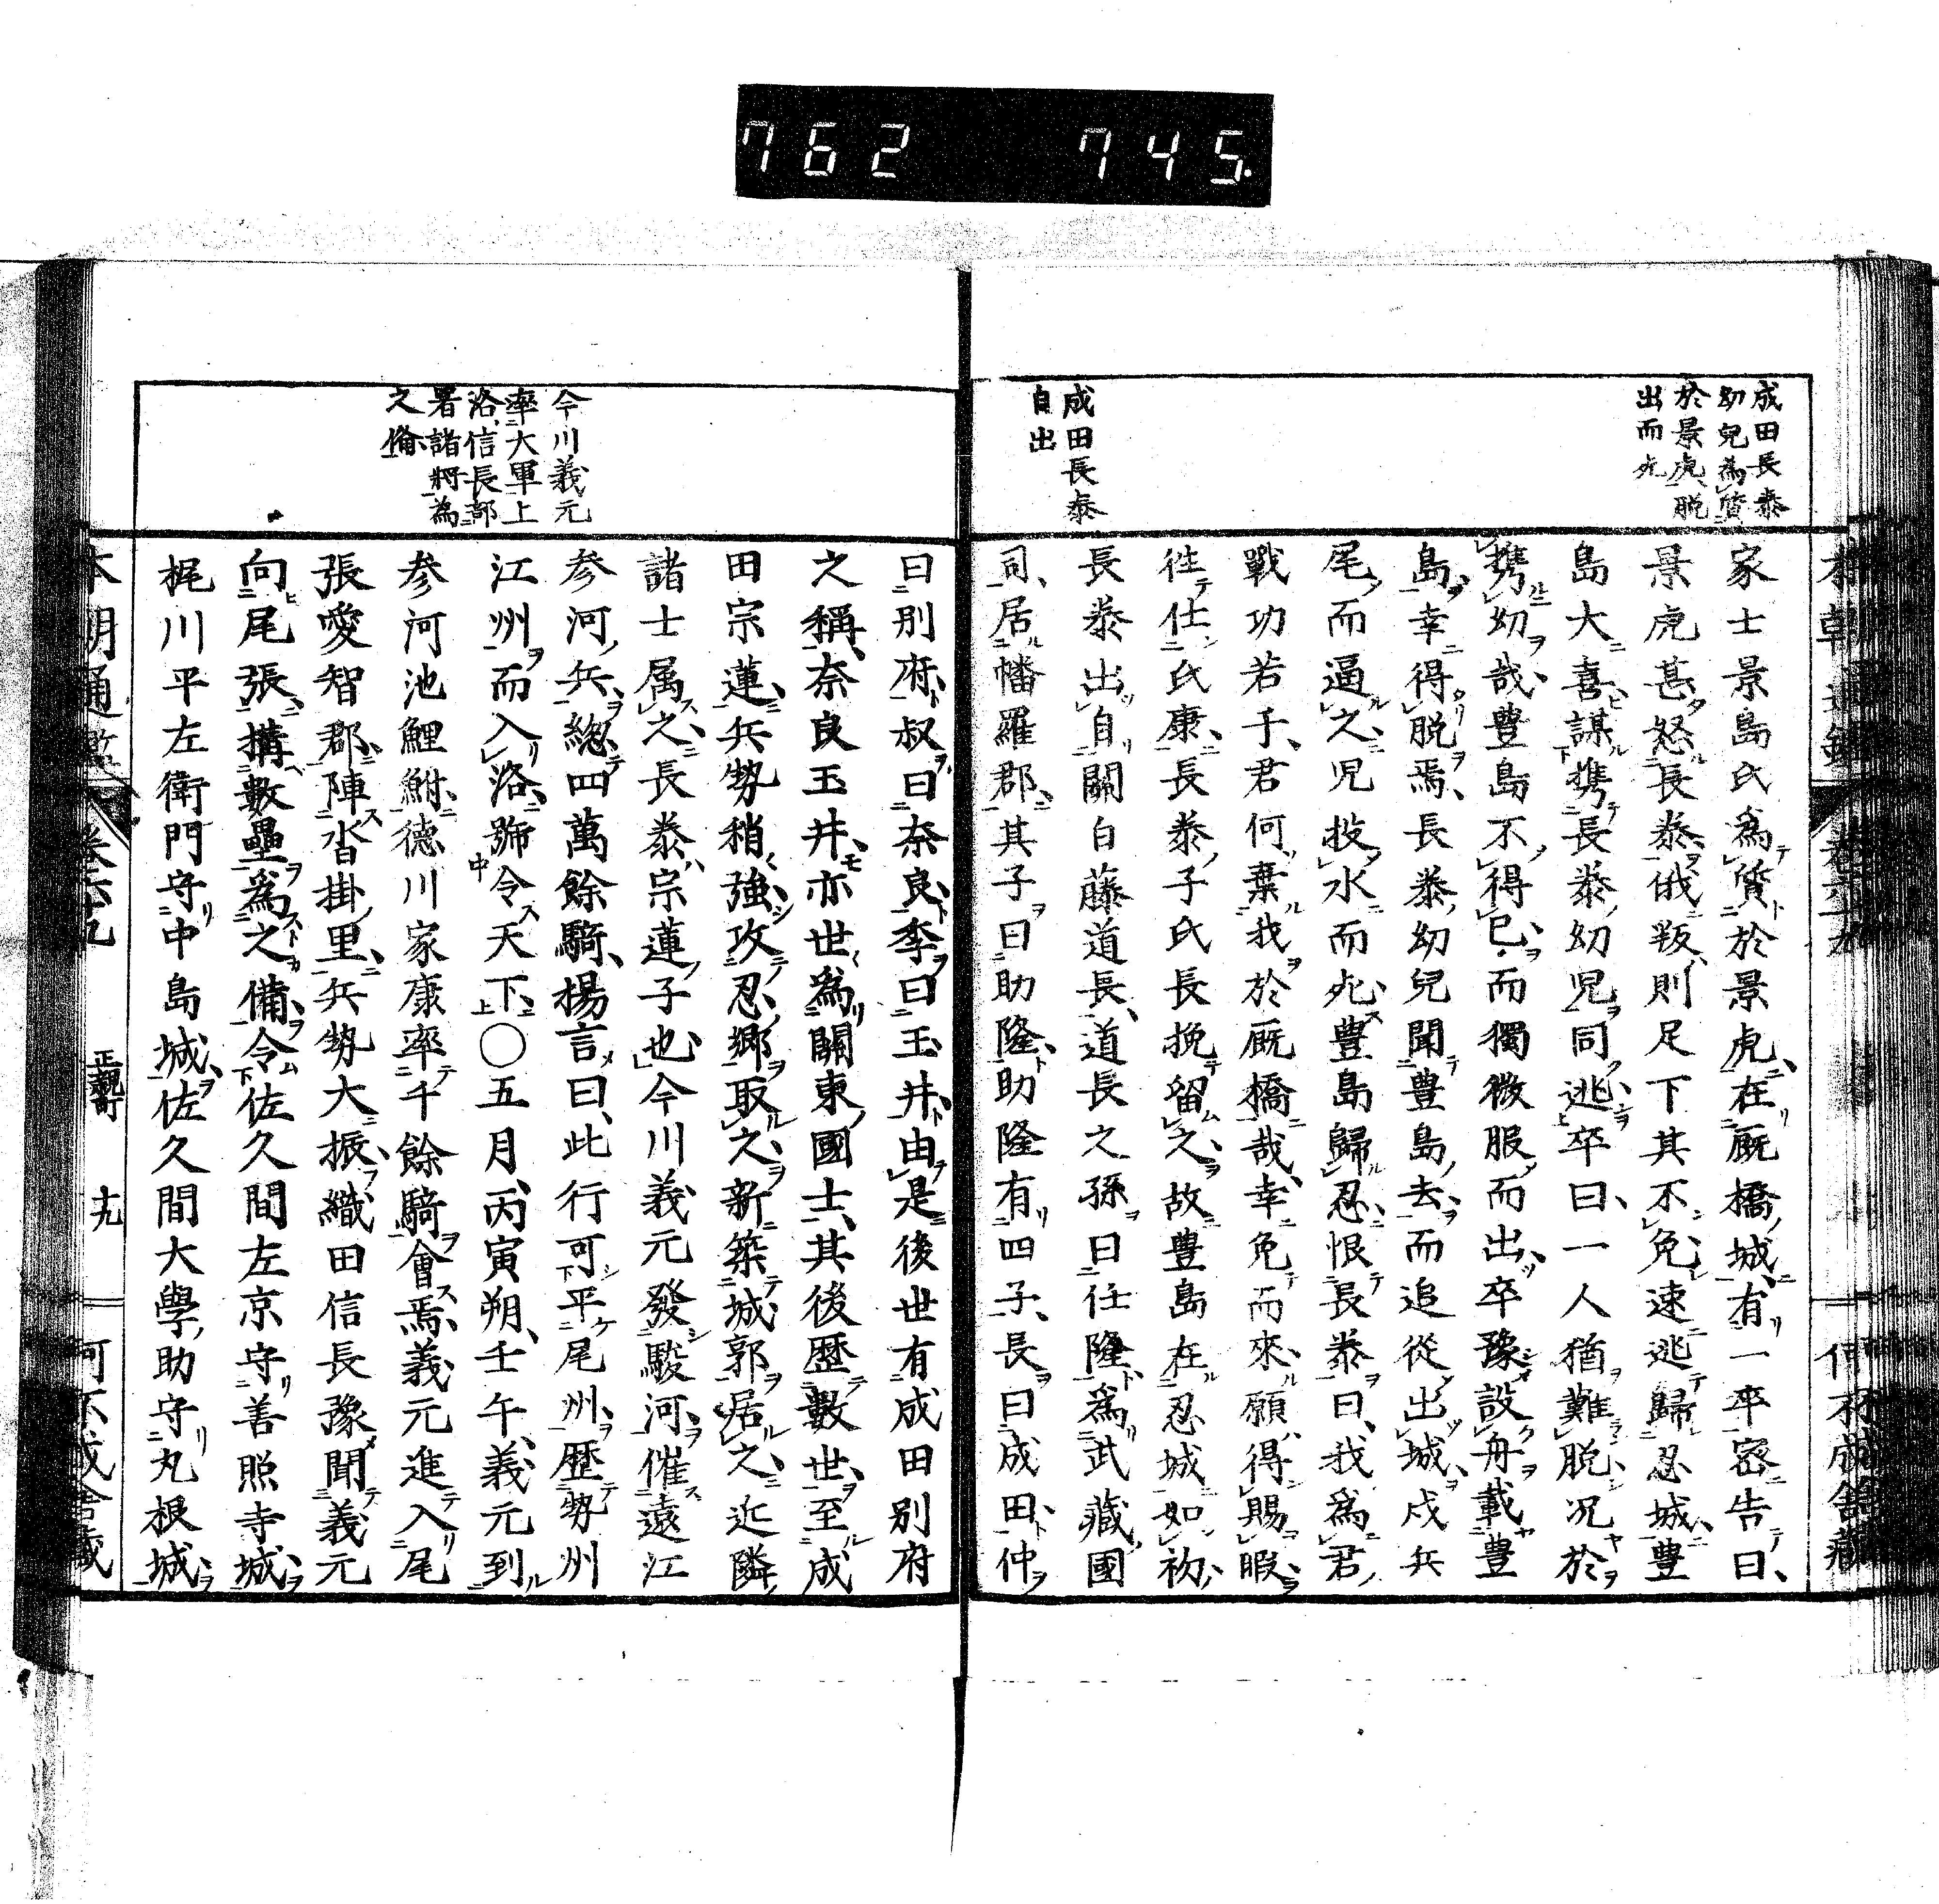 762 745.
成田長泰
幼兒為質
於景虎脱
出而死
成田長泰
自出
家士景島氏為質於景虎在厩橋城有一卒密告曰
景虎甚怒長泰俄叛則足下其不免速逃歸忍城豊
島大喜謀携長泰幼児同逃卒曰一人猶難脱况於
携幼哉豊島不得已而獨微服而出卒豫設舟載豊
島幸得脱焉長泰幼兒聞豊島去而追從出城戍兵
尾而逼之児投水而死豊島歸忍恨長泰曰我為君
戰功若干君何棄我於厩橋哉幸免而來願得賜暇
徃仕氏康長泰子氏長挽留之故豊島在忍城如初
長泰出自關白藤道長道長之孫曰任隆為武藏國
司居幡羅郡其子曰助隆助隆有四子長曰成田仲
曰別府叔曰奈良季曰玉井由是後世有成田別府
之稱奈良玉井亦世為關東國士其後歴數世至成
田宗蓮兵勢稍強攻忍郷取之新築城郭居之近隣
諸士属之長泰宗蓮子也今川義元發駿河催遠江
参河兵総四萬餘騎揚言曰此行可平尾州歴勢州
江州而入洛號令天下〇五月丙寅朔壬午義元到
参河池鯉鮒德川家康率千餘騎會焉義元進入尾
張愛智郡陣沓掛里兵勢大振織田信長豫聞義元
向尾張搆數壘為之備令佐久間左京守善照寺城
梶川平左衛門守中島城佐久間大學助守丸根城
今川義元
率大軍上
洛信長部
署諸將為
之備
本朝通鑑 卷六十九 正親町 十九